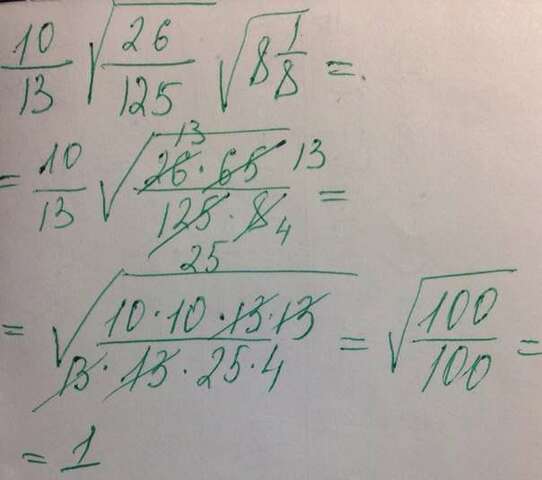 10/13 √(26/125) √(8 1/8) =
= 10/13 √(26 · 65 / 125 · 8) = 13 13 25 4
= √(10 · 10 · 13 · 13 / 13 · 13 · 25 · 4) = √(100/100) =
= 1